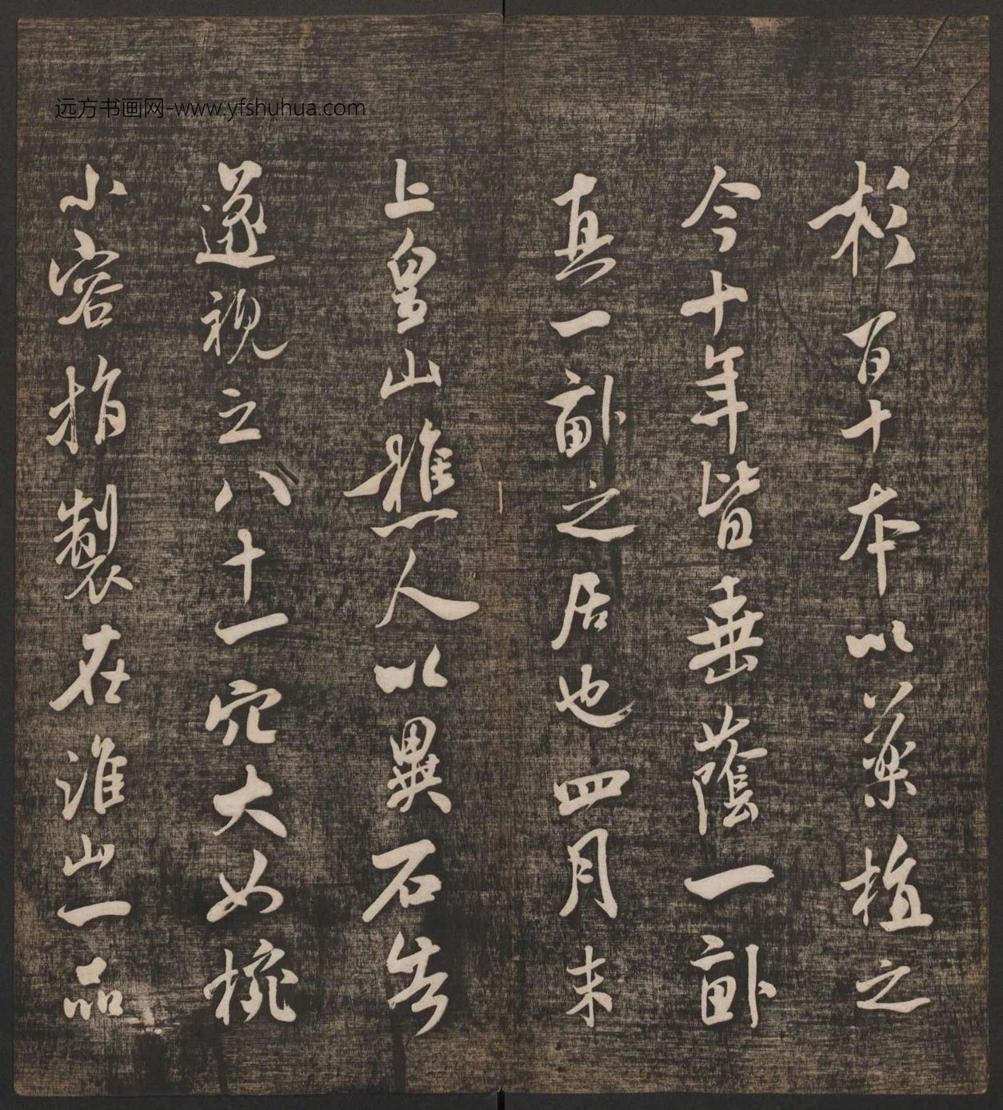 远方书画网-www.yfshuhua.com
杉百十本以藥植之
今十年皆垂蔭一畝
真一畝之居也四月末
上皇山樵人以異石告
遂視之八十一穴大如椀
小容指製在淮山一品